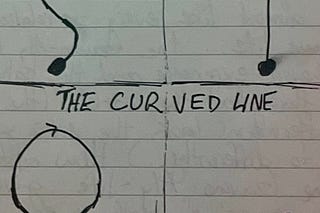 THE CURVED LINE